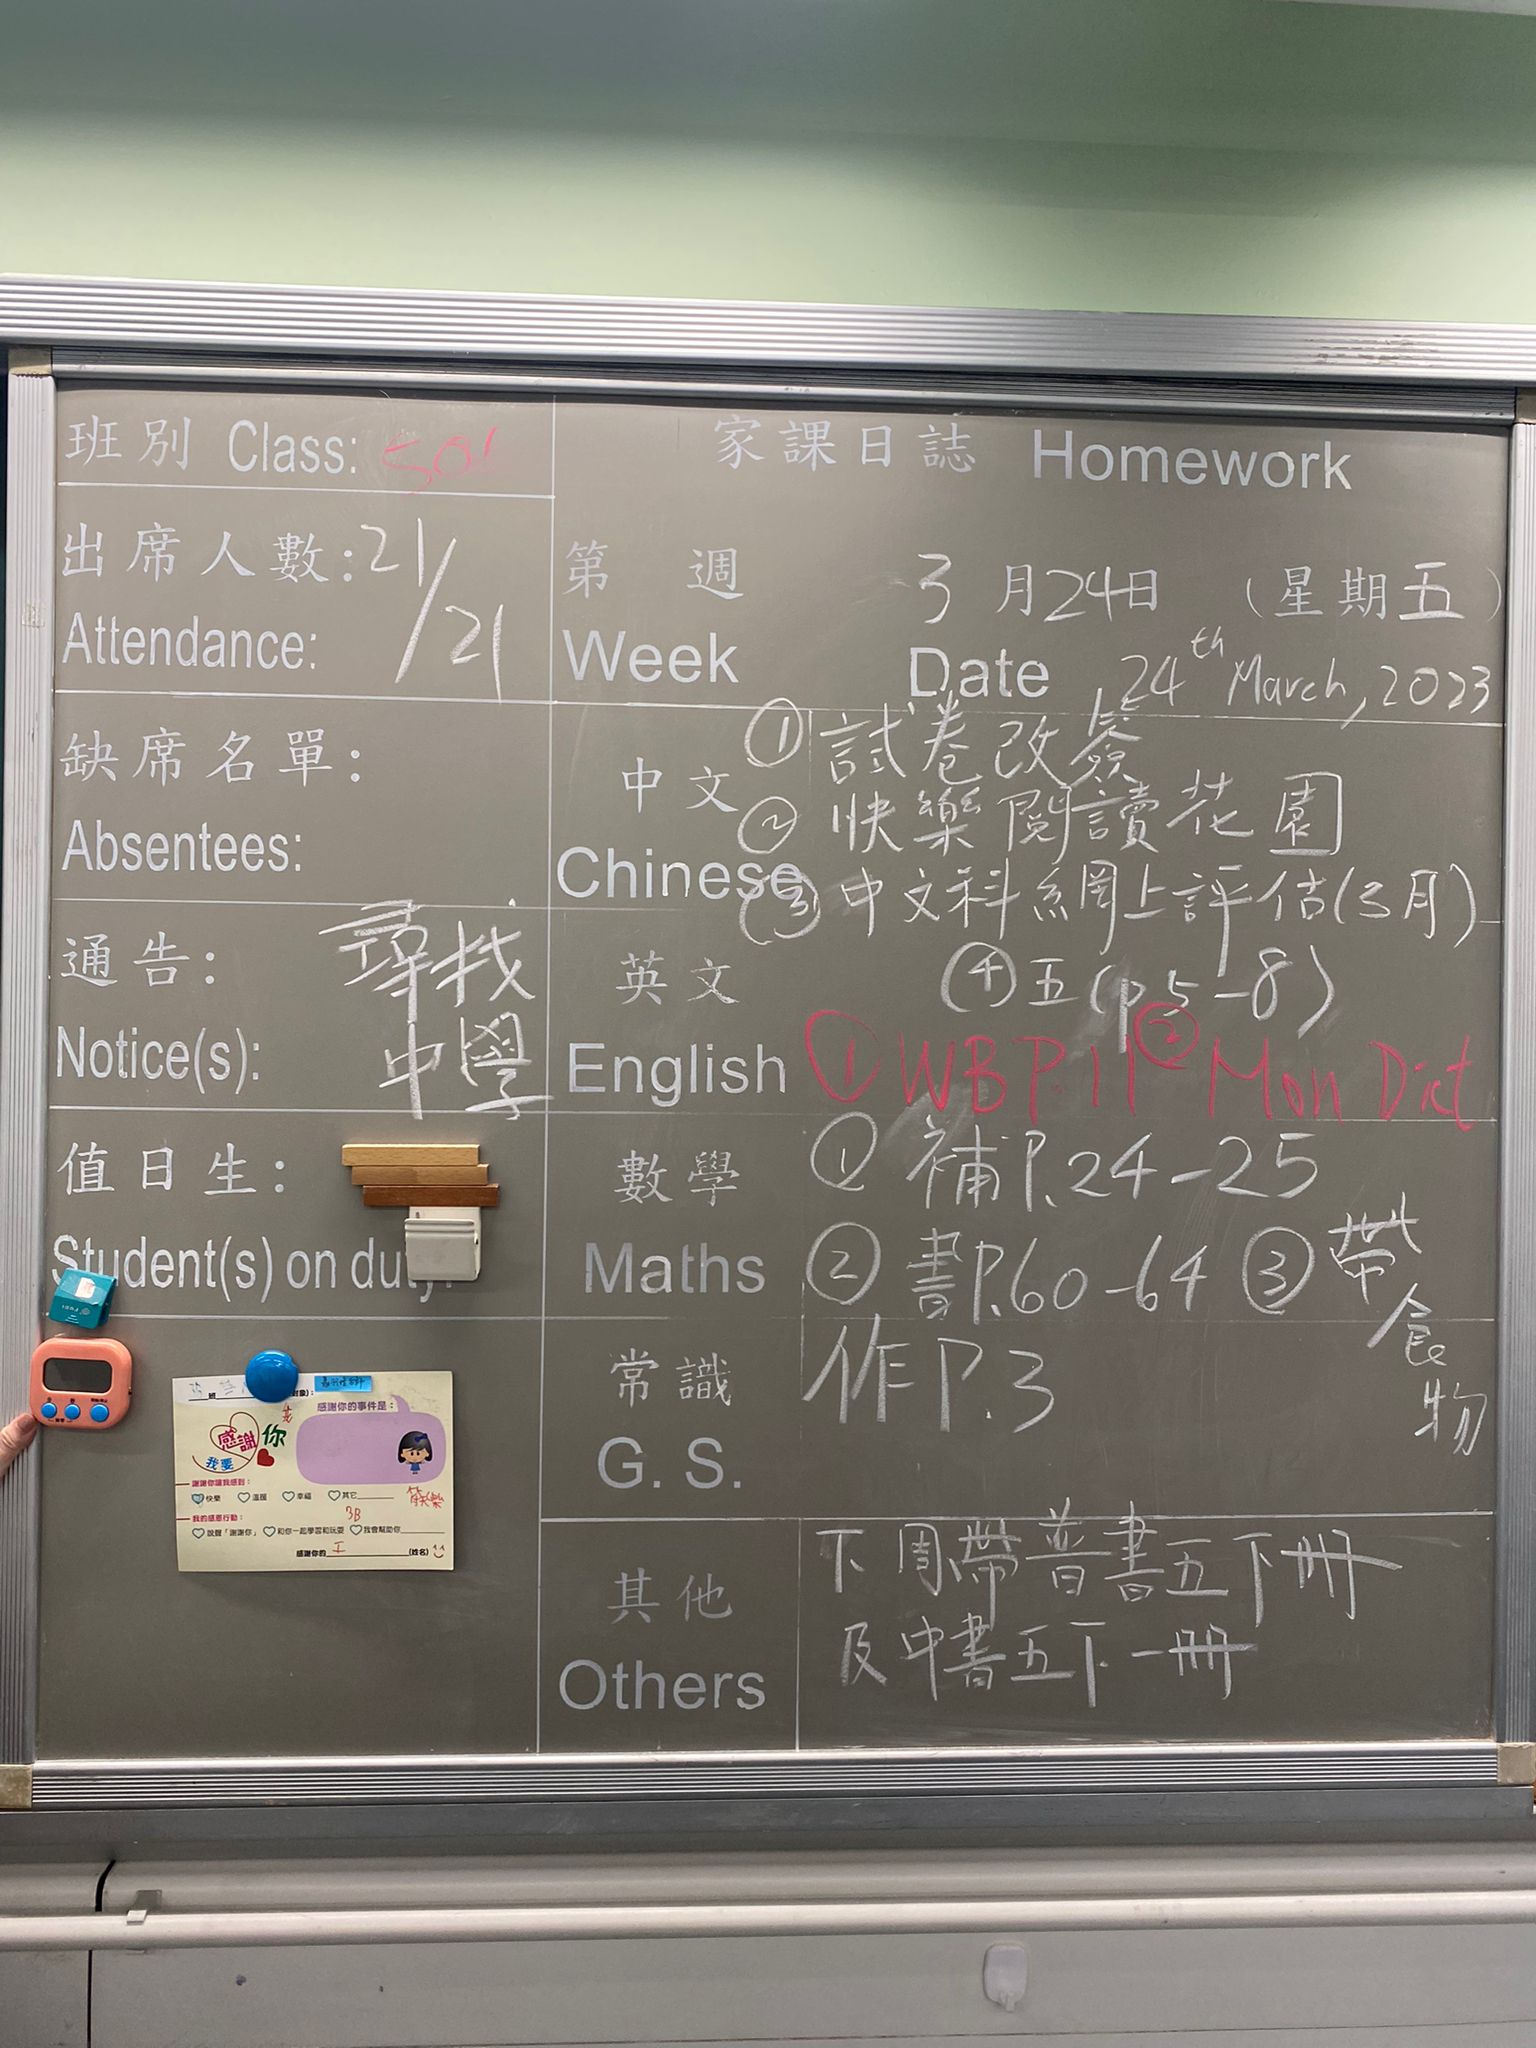 班別 Class: 501
出席人數: 21/21
Attendance:
缺席名單:
Absentees:
通告: 尋找
Notice(s): 中學
值日生:
Student(s) on duty:
家課日誌 Homework
第 週 3月24日 (星期五)
Week Date 24th March, 2023
中文 ①試卷改簽
②快樂閱讀花園
Chinese ③中文科網上評估(3月)
英文 ④五(p5-8)
English ①WB P.11 ②Mon Dict
數學 ①補P.24-25
Maths ②書P.60-64 ③帶食物
常識 作P.3
G. S.
其他 下周帶普書五下冊
及中書五下一冊
Others
班
感謝你的事件是:
我要感謝你
謝謝你讓我感到:
快樂 溫暖 幸福 其它
我的感恩行動:
說聲「謝謝你」 和你一起學習和玩耍 我會幫助你
感謝你的 (姓名)